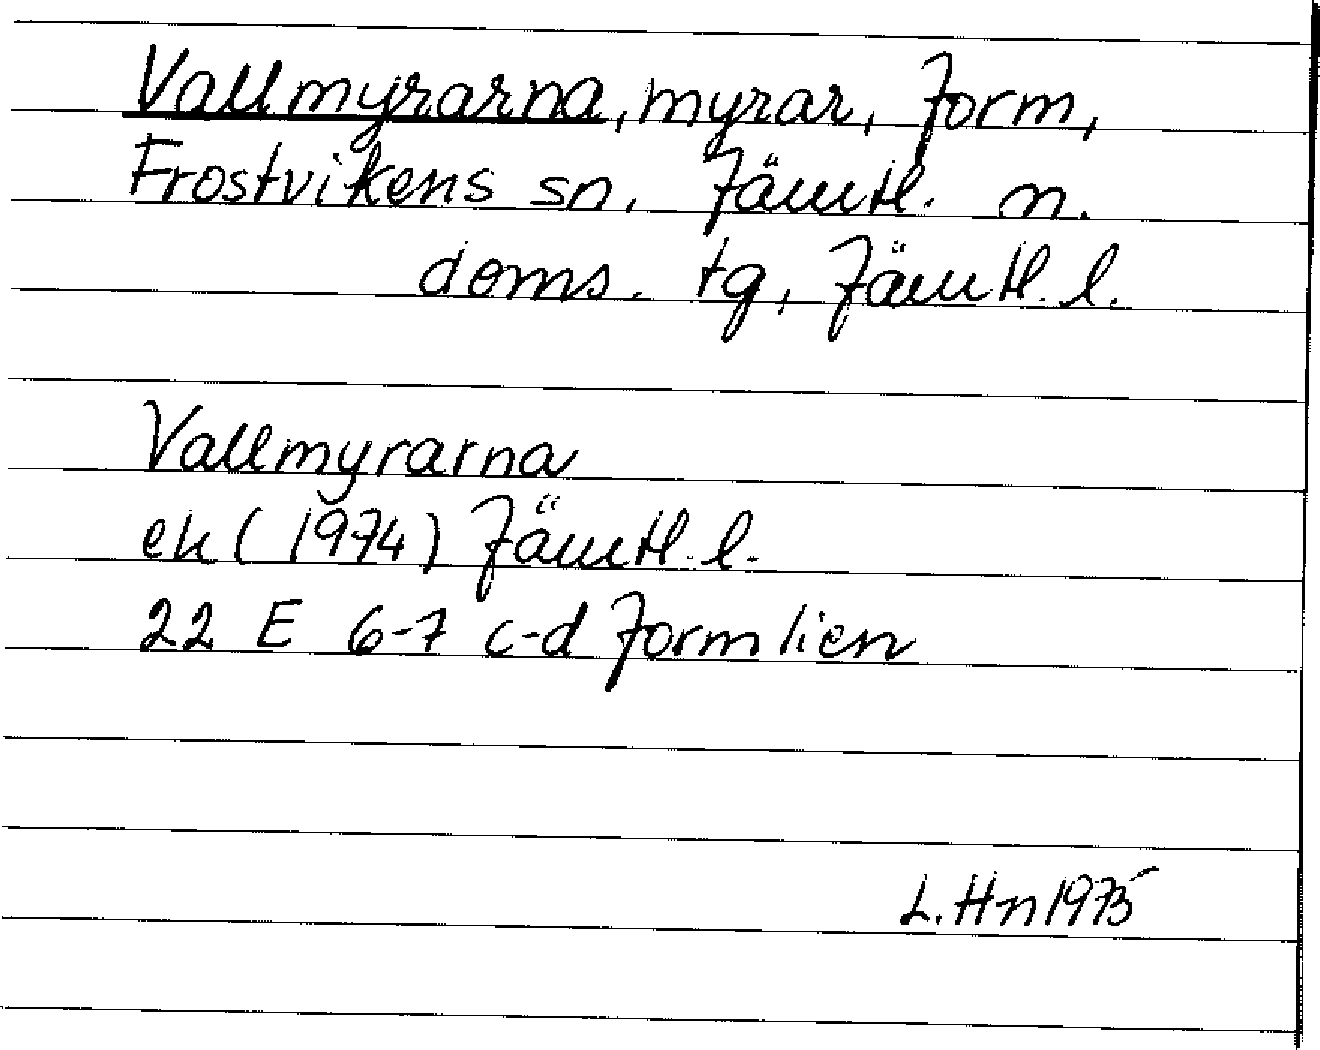 Vallmyrarna, myrar, Jorm,
Frostvikens sn, Jämtl. n.
doms. tg, Jämtl. l.
Vallmyrarna
ek (1974) Jämtl. l.
22 E 6-7 c-d Jormlien
L. Hn 1975